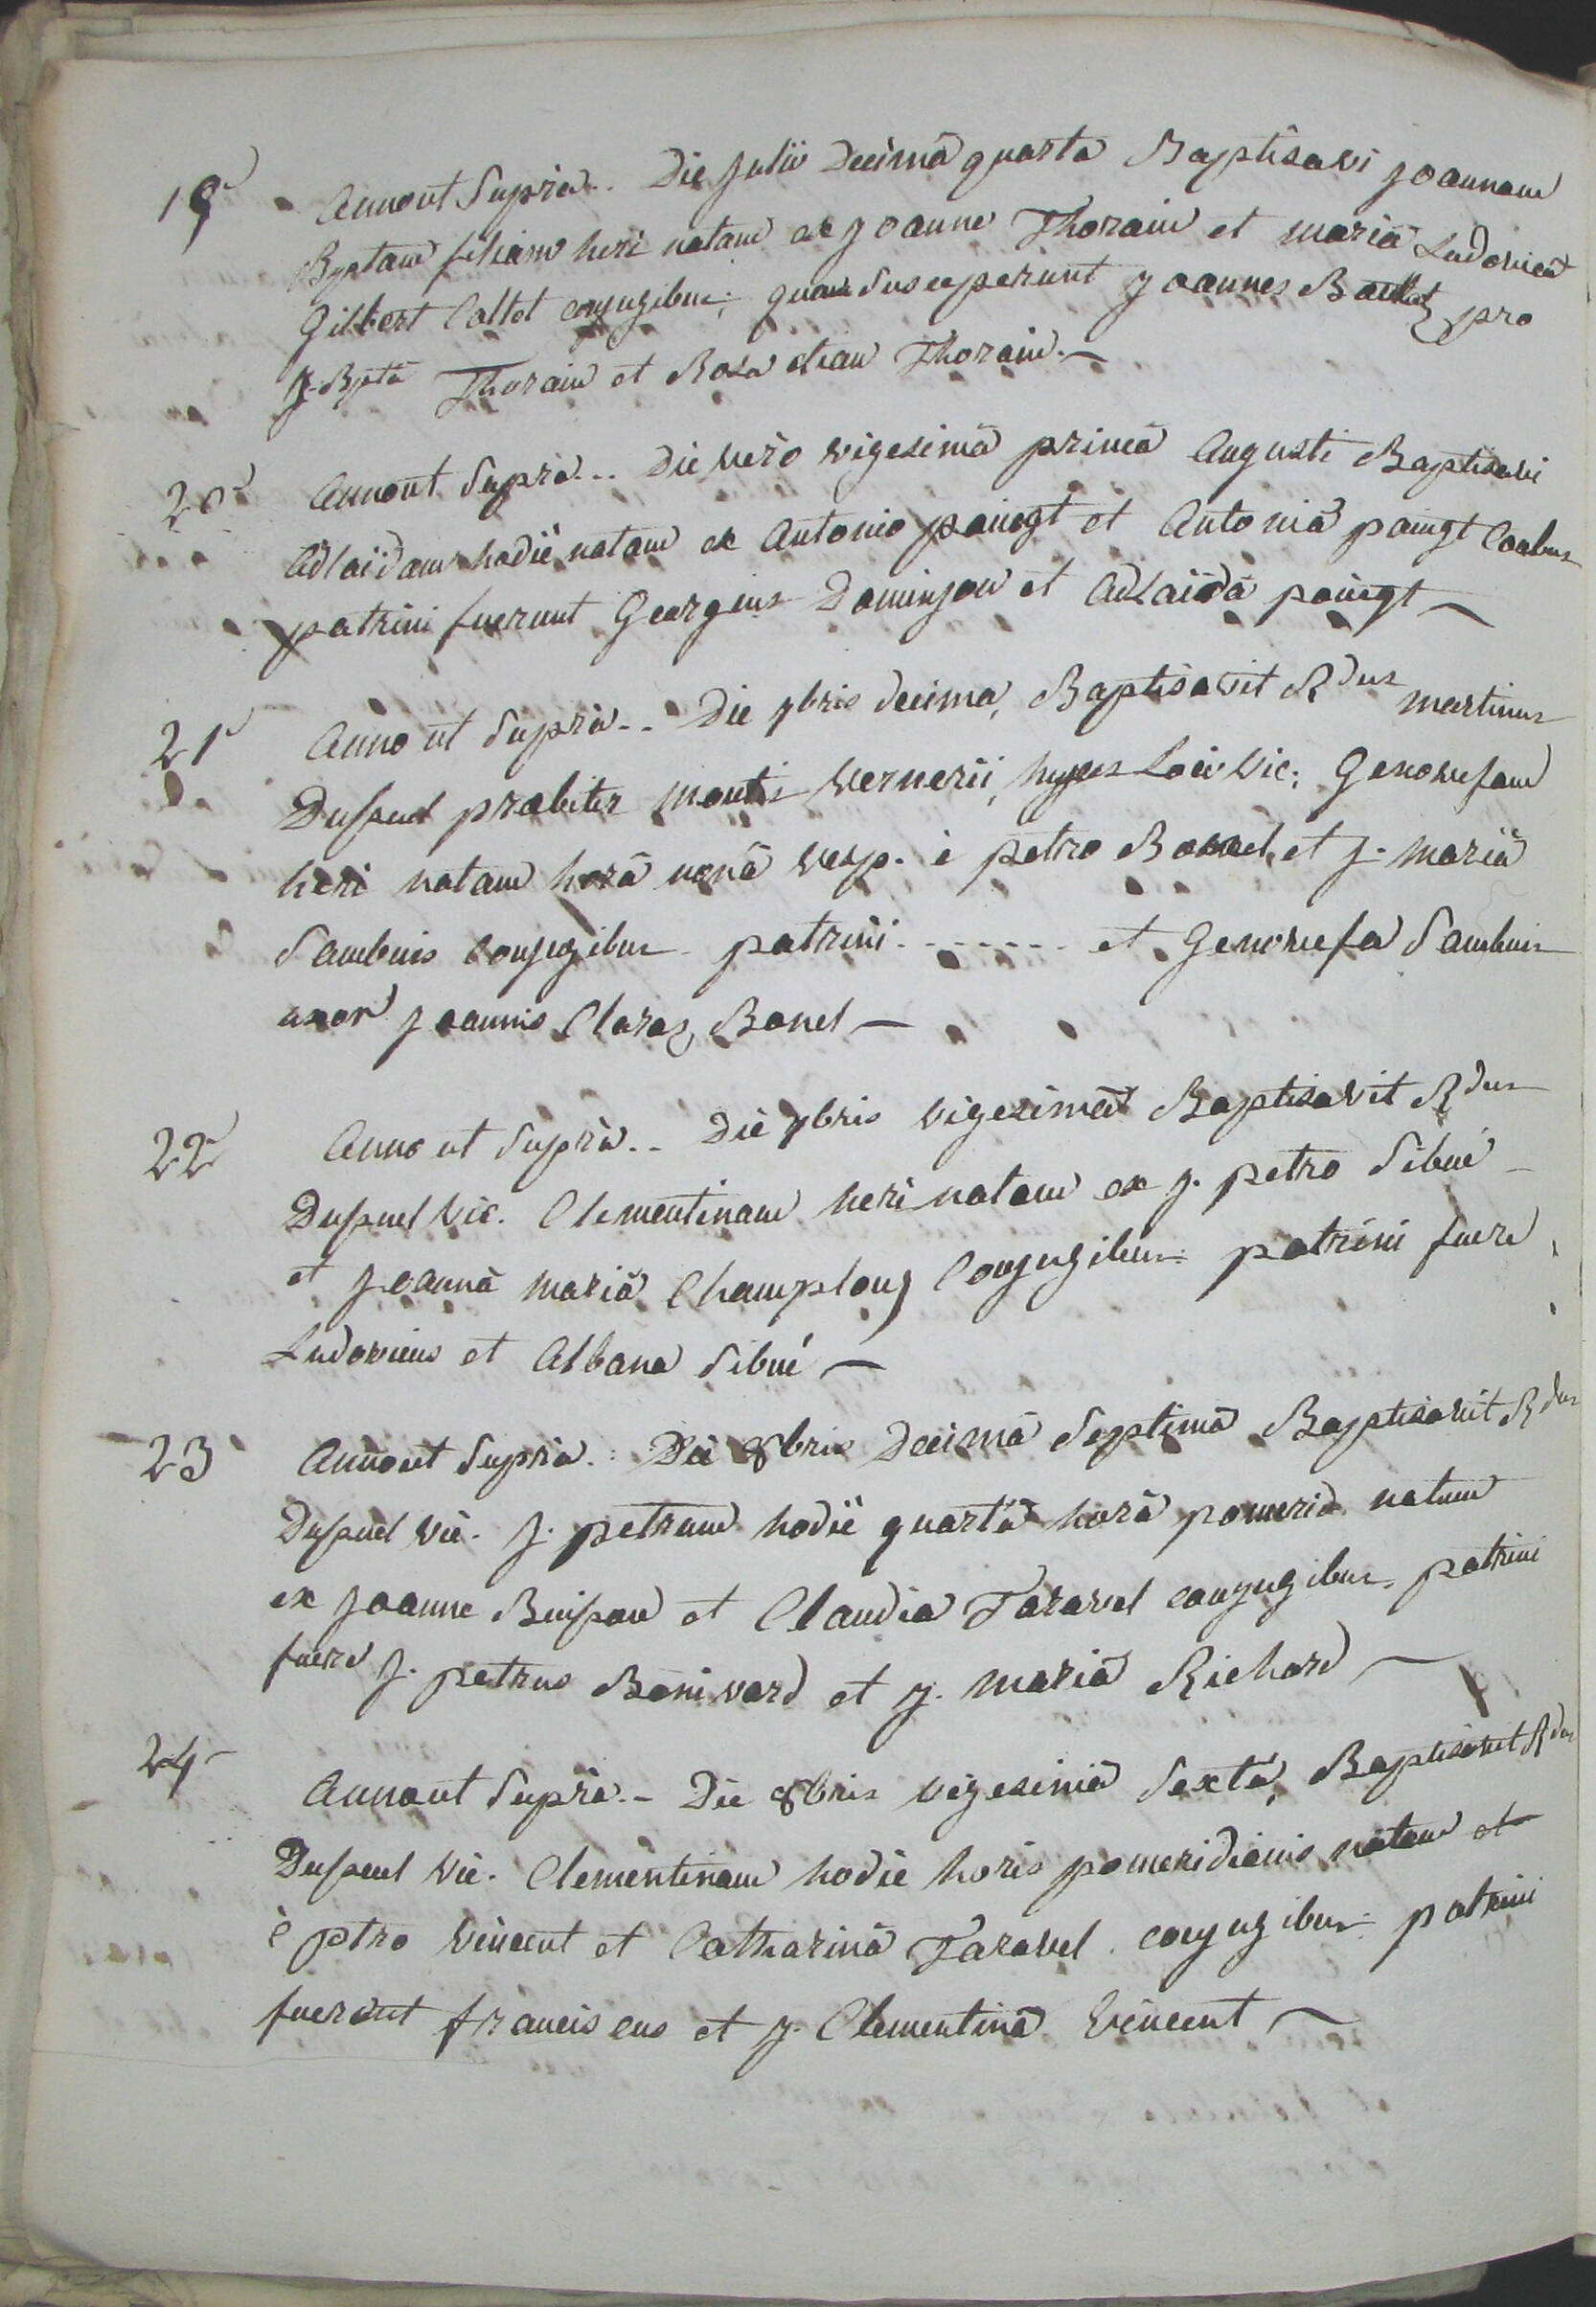 19 Anno ut Supra.. Die Julii Decimâ quarta Baptisavi Joannam
Bptam filiam heri natam ex Joanne Thorain et mariâ Ludovicâ
Gilbert Collet conjugibus; quam Susceperunt Joannes pro
J. Bptâ Thorain et Rosa etiam Thorain.—
20 Anno ut Suprà... Die verò vigesimâ primâ Augusti Baptisavi
Adlaïdam hodiè natam ex Antonio paingt et Antoniâ paingt
patrini fuerunt Georgius Dominjon et Adlaïda paingt —
21 Anno ut Suprà.. Die 7bris decima, Baptisavit Rdus martinus
Dupuel prœbiter montis Vernerii, hujus Loci Vic; Genovefam
heri natam horâ nonâ vesp. è petro Bonnel et J. mariâ
Sambuis Conjugibus patrini - - - - - - - et Genovefa Sambuis
uxor Joannis Claraz Bonel —
22 Anno ut Suprà.. Die 7bris vigesimâ Baptisavit Rdus
Dupuel Vic. Clementinam heri natam ex J. petro Sibué
et Joannâ mariâ Champlong Conjugibus: patrini fuere
Ludovicus et Albana Sibué —
23 Anno ut Suprà.: Die 8bris Decimâ Septimâ Baptisavit Rdus
Dupuel vic. J. petrum hodiè quartâ horâ pomerid natum
ex Joanne Buisson et Claudia Taravel conjugibus. patrini
fuere J. petrus Bonivard et J. maria Richard —
24 Anno ut Suprà.- Die 8bris vigesimâ Sextâ, Baptisavit Rdus
Dupuel Vic. Clementinam hodie horis pomeridianis natam et
è petro Vincent et Catharinâ Taravel conjugibus: patrini
fuerunt franciscus et J. Clementina Vincent —